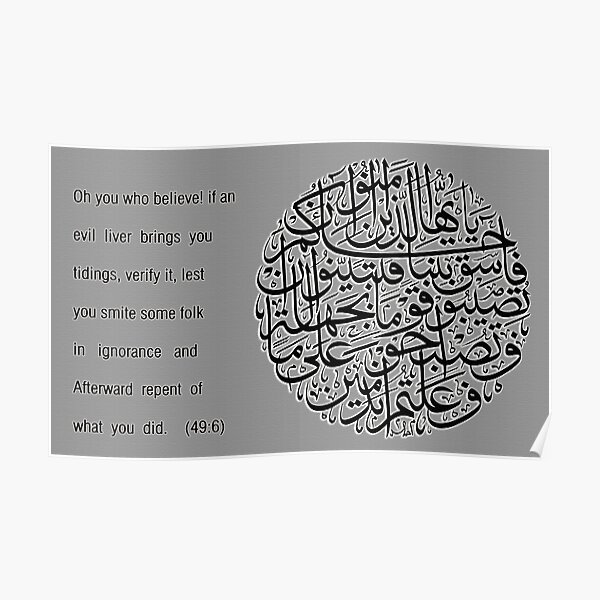 Oh you who believe! if an
evil liver brings you
tidings, verify it, lest
you smite some folk
in ignorance and
Afterward repent of
what you did. (49:6)
يَٰأَيُّهَا الَّذِينَ ءَامَنُوٓا إِن
جَآءَكُمْ
فَاسِقٌ بِنَبَإٍ فَتَبَيَّنُوٓا أَن
تُصِيبُوا قَوْمًا بِجَهَٰلَةٍ
فَتُصْبِحُوا عَلَىٰ مَا
فَعَلْتُمْ نَٰدِمِينَ